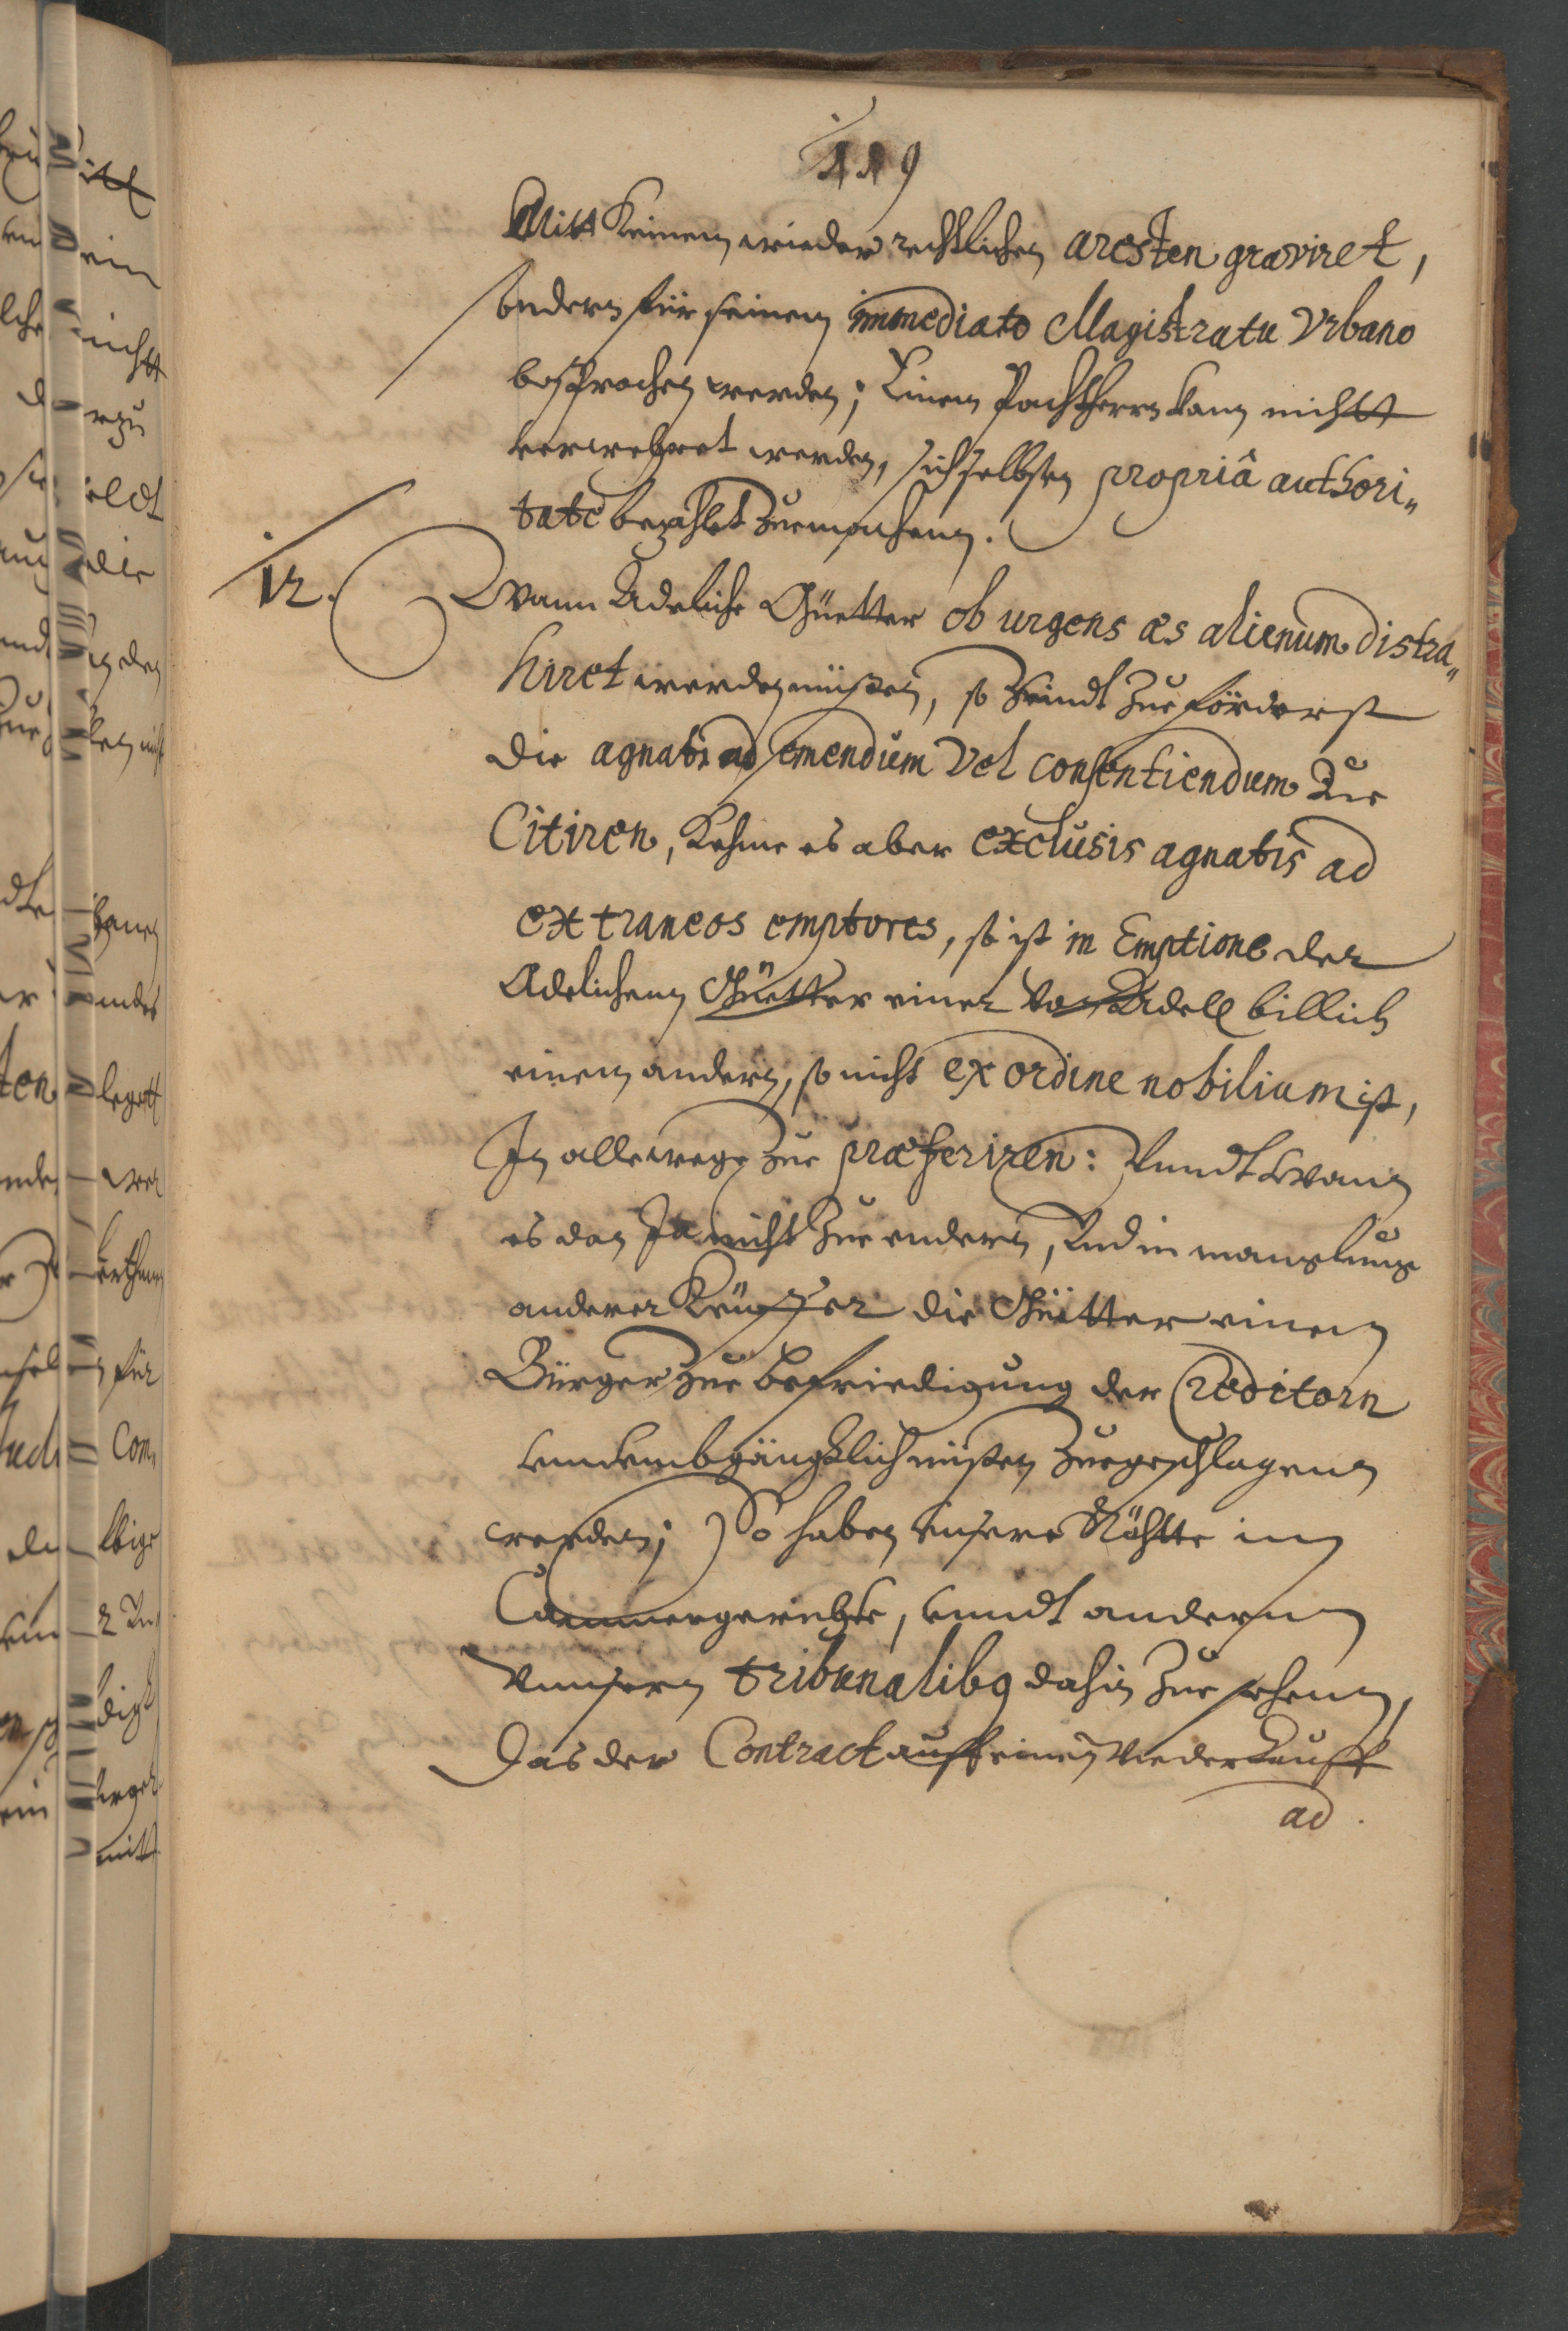 119
Mitt Keinem wiederrechtlichen aresten graviret,
sondern für seinem immediato Magistratu Vrbano
besprochen werden; Einem Pachtherrn kann nichtt
verwehret werden, sich selbsten propriâ authori„
tate bezahlet zue machenn.
12. Wann Adeliche Güetter ob urgens æs alienum distra„
hiret werden müßen, so seindt zue förderst
die agnati ad emendum vel consentiendum zue
Citiren, Kehme es aber exclusis agnatis ad
extraneos emptores, so ist in Emptione der
Adelichenn Güetter einer von Adell billich
einem andern, so nicht ex ordine nobilium ist,
In allewege zue præferiren: Vnndt wann
es dan Ja nicht zue endern, und in mangelung
anderer Keuffer die Güetter einem
Bürger zue befriedigung der Creditorn
vnumbgängklich müßen zuegeschlagenn
werden; So haben unsere Räthte im
Cammergerichte, unndt andernn
Vnnsern tribunalibg dahin zue sehenn,
Das der Contract auff einen wiederkauff
ad.